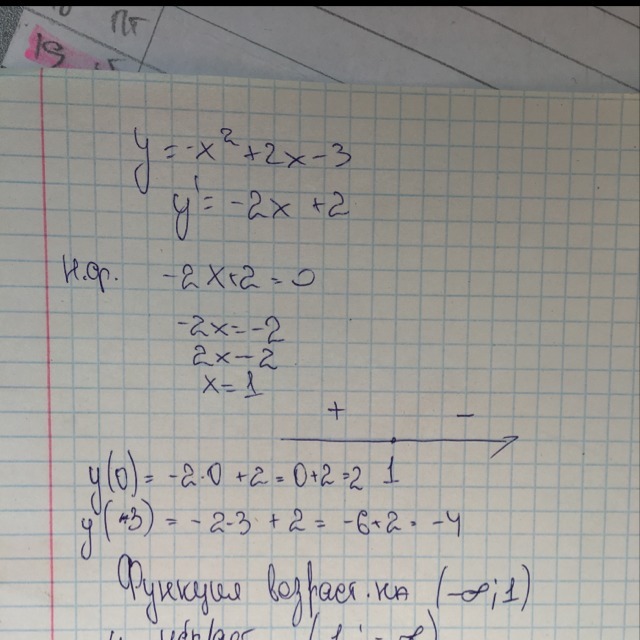 Пт
19
y = -x² + 2x - 3
y' = -2x + 2
Н.ф. -2x+2=0
-2x=-2
2x-2
x=1
+ -
1
y(0) = -2·0 + 2 = 0+2=2
y(+3) = -2·3 + 2 = -6+2 = -4
Функция возраст. на (-∞;1)